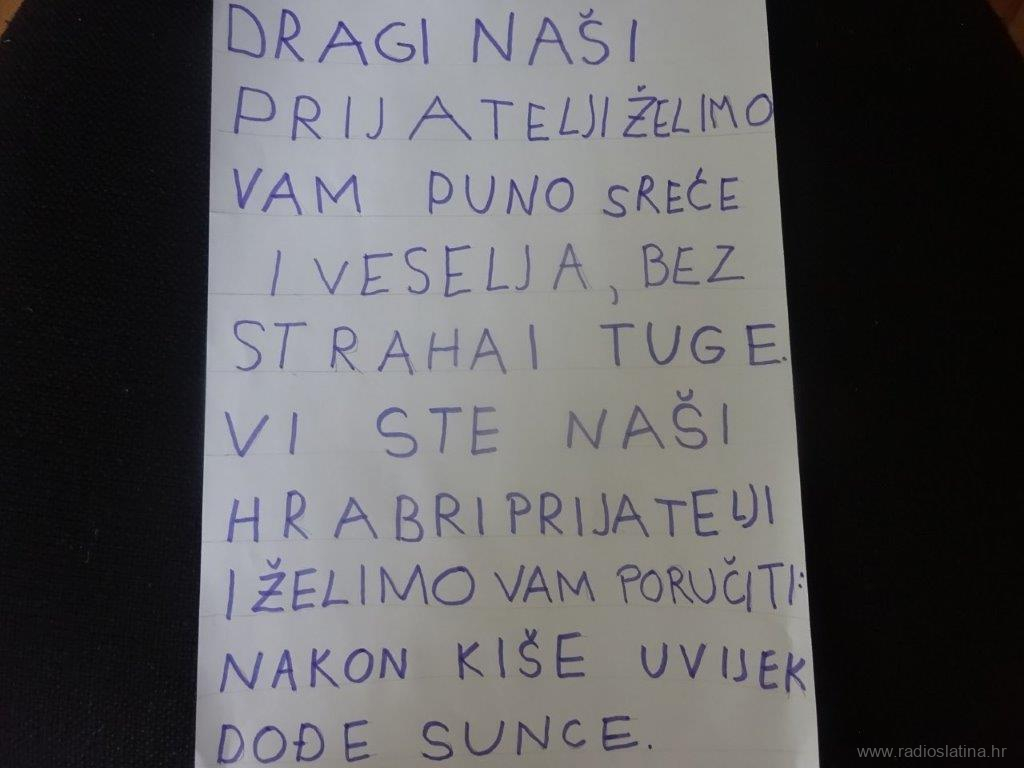 DRAGI NAŠI
PRIJATELJI ŽELIMO
VAM PUNO SREĆE
I VESELJA, BEZ
STRAHA I TUGE.
VI STE NAŠI
HRABRI PRIJATELJI
I ŽELIMO VAM PORUČITI:
NAKON KIŠE UVIJEK
DOĐE SUNCE.
www.radioslatina.hr